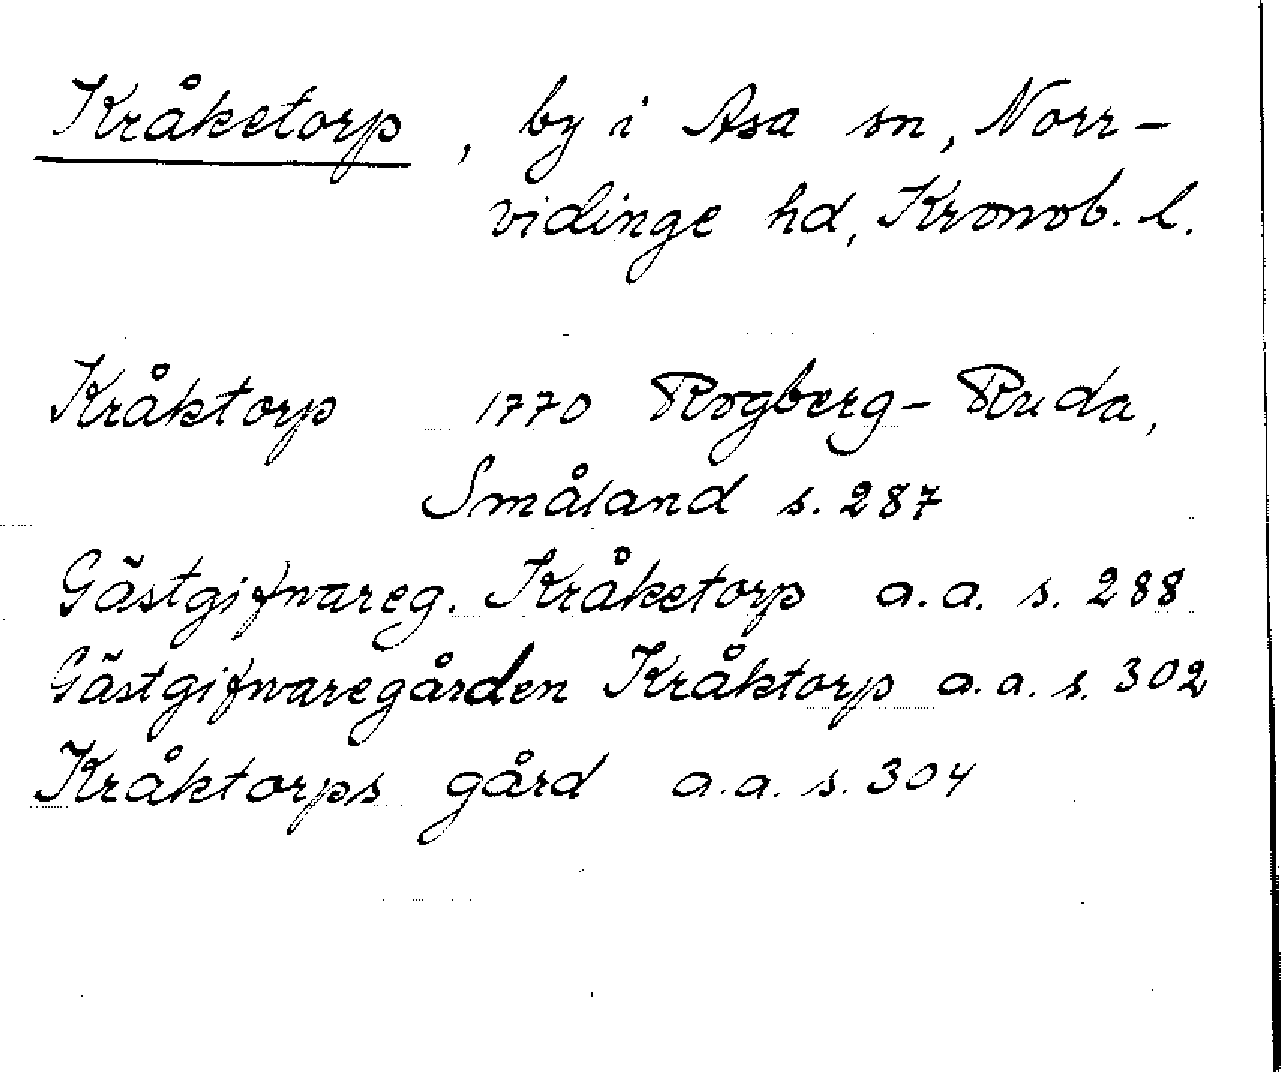 Kråketorp, by i Asa sn, Norr-
vidinge hd, Kronob. l.
Kråktorp 1770 Rogberg-Ruda,
Småland s. 287
Gästgifvareg. Kråketorp a.a. s. 288
Gästgifvaregården Kråktorp a.a. s. 302
Kråktorps gård a.a. s. 304